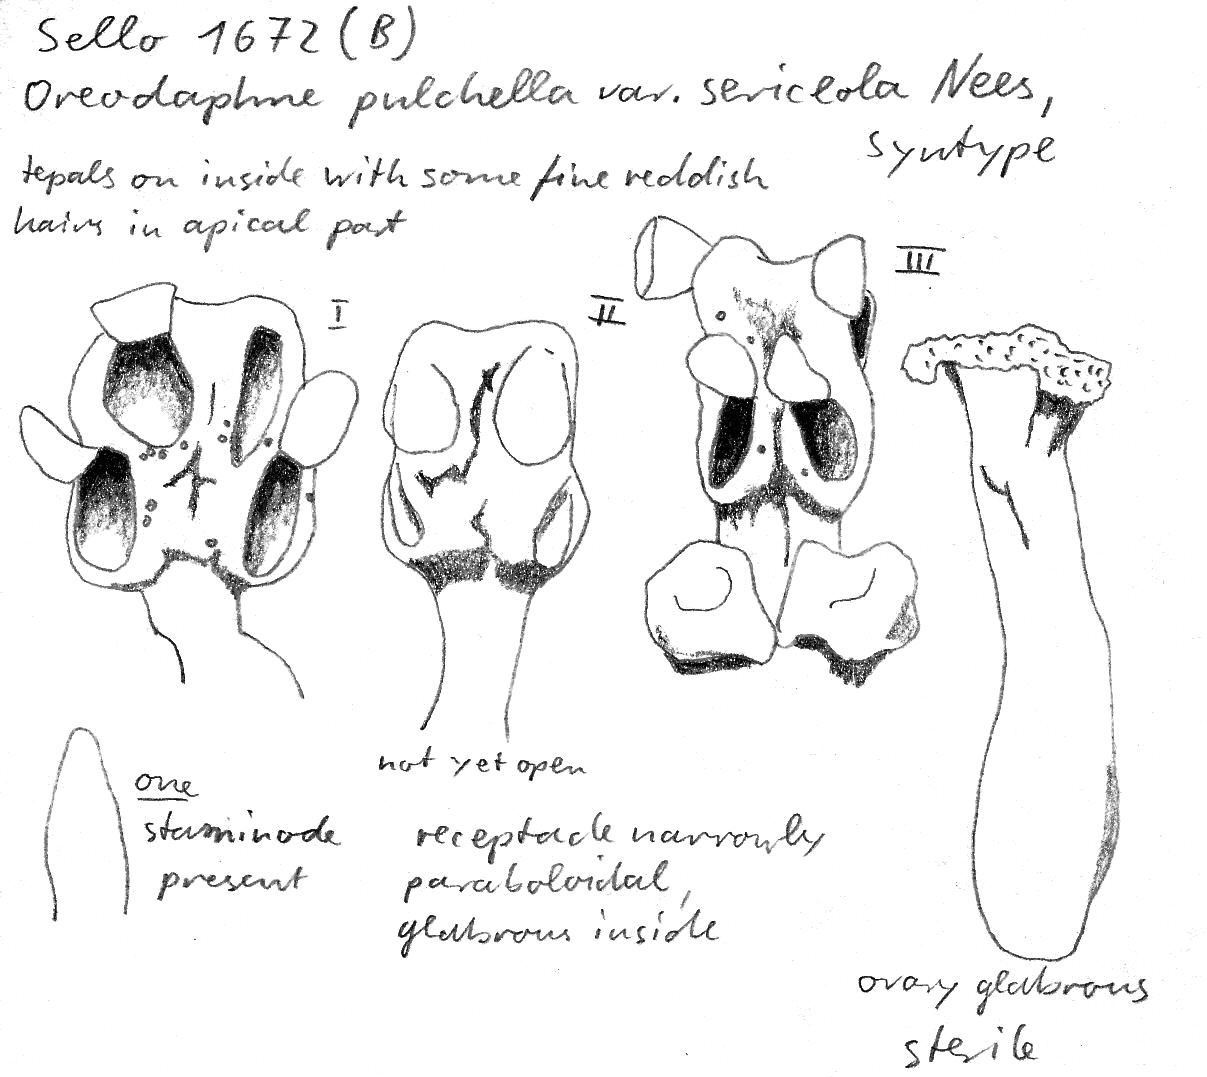 Sello 1672 (B)
Oreodaphne pulchella var. sericeola Nees,
syntype
tepals on inside with some fine reddish
hairs in apical part
I
II
III
not yet open
one
staminode
present
receptacle narrowly
paraboloidal,
glabrous inside
ovary glabrous
sterile